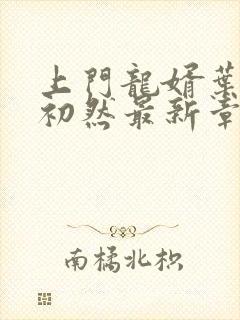 上門龍婿葉
初然最新章
南橘北枳